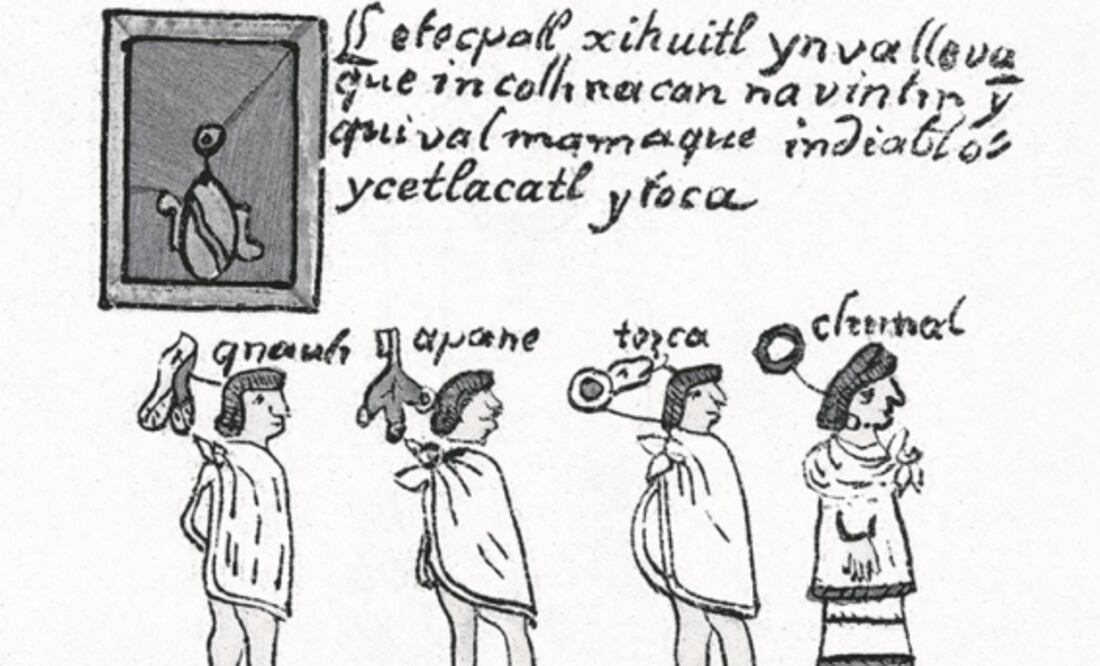 Cetecpatl xihuitl ynvalleva
que incolhuacan navintin ȳ
quivalmamaque indiablo
ycetlacatl ytoca
quauh apane tezca chimal